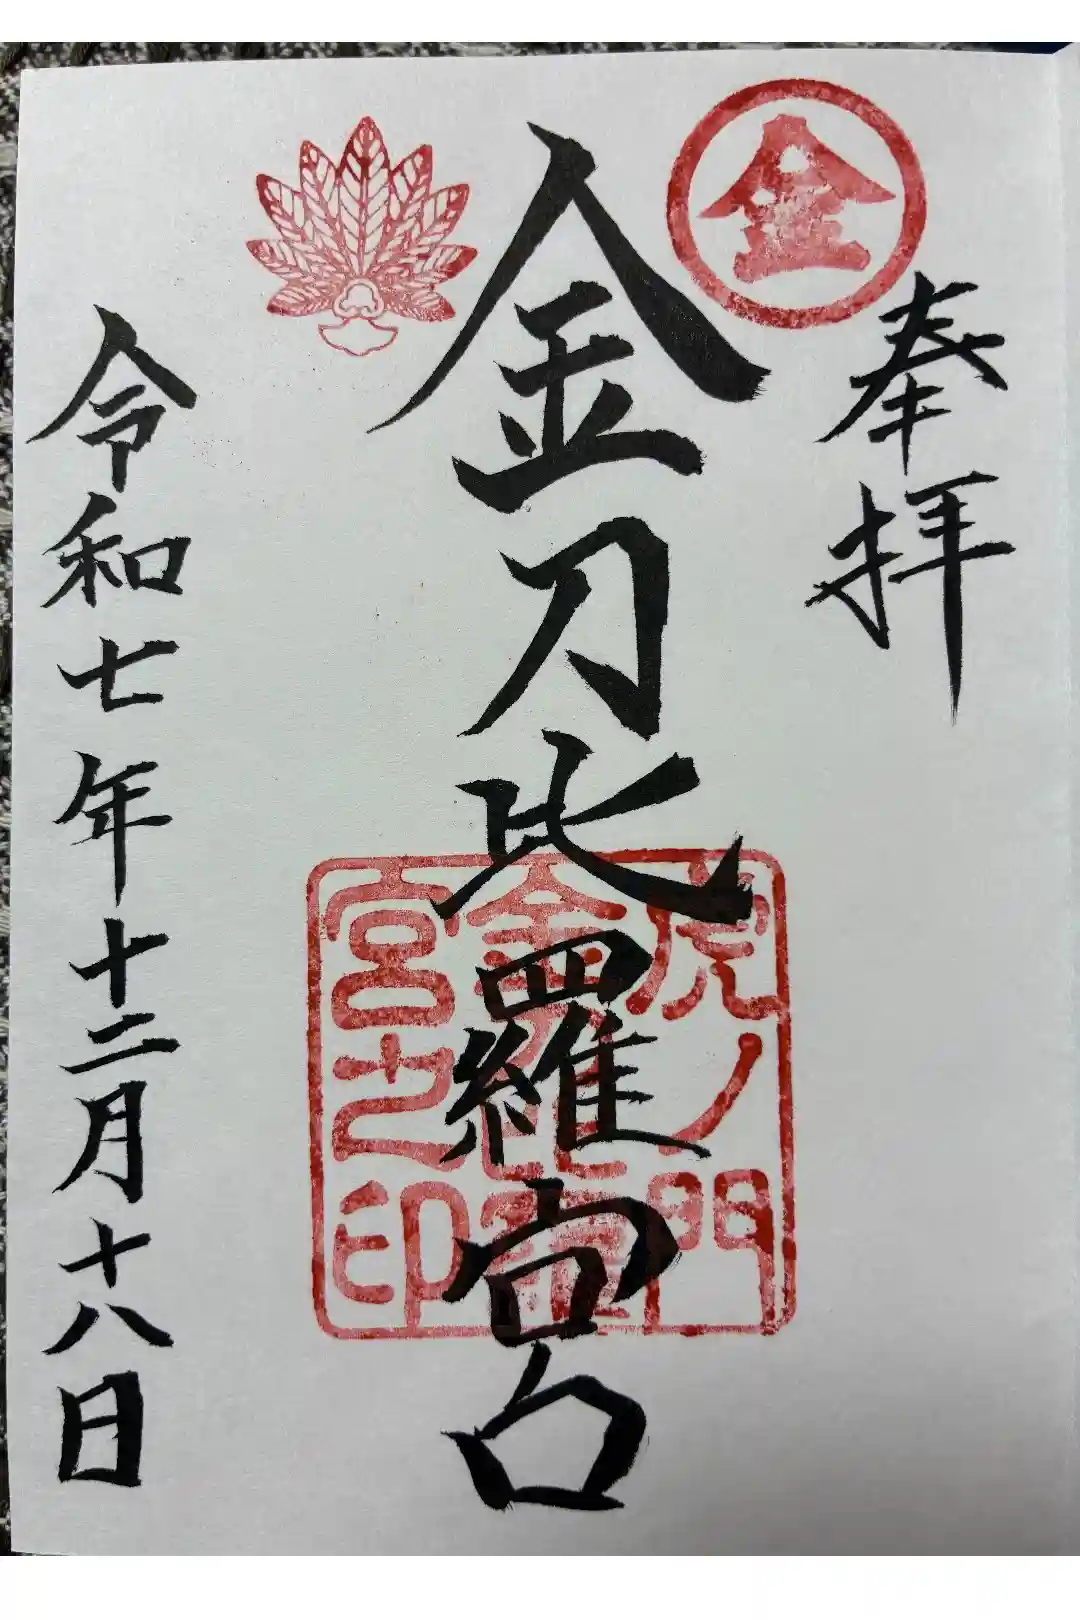 奉拝
金
金刀比羅宮
虎ノ門
金刀比羅
宮之印
令和七年十二月十八日